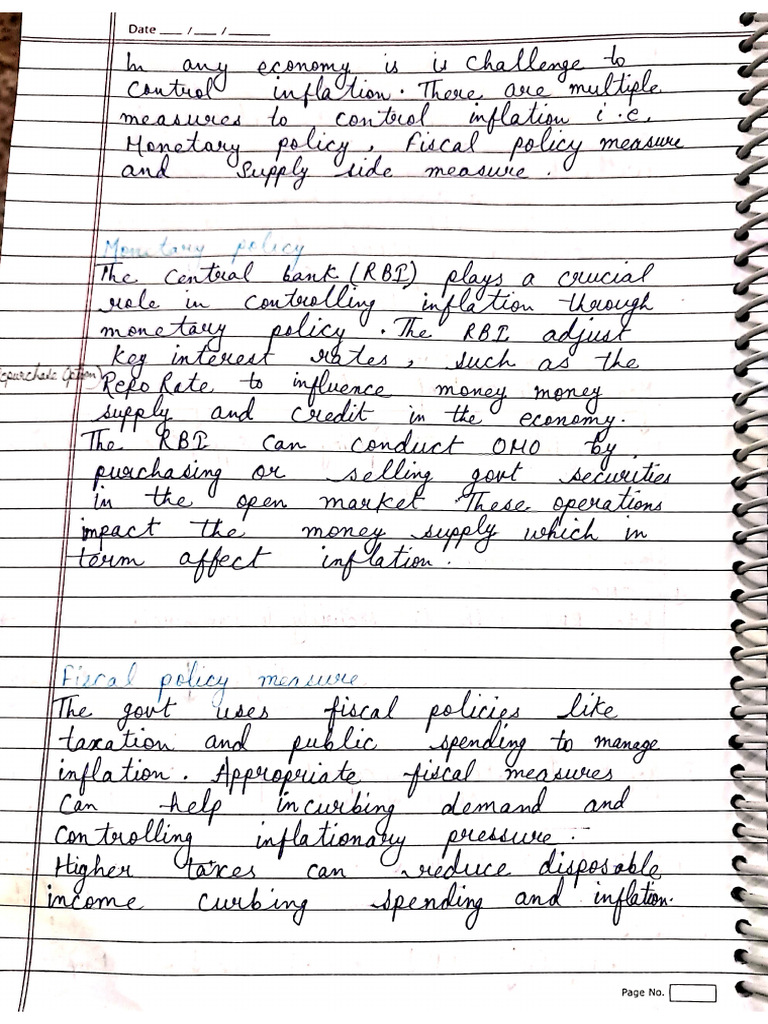 Date ___ / ___ / _____
In any economy is is challenge to
control inflation. There are multiple
measures to control inflation i.e.
Monetary policy, fiscal policy measure
and Supply side measure.
Monetary policy
The central bank (RBI) plays a crucial
role in controlling inflation through
monetary policy. The RBI adjust
key interest rates, such as the
Repo Rate to influence money money
supply and credit in the economy.
The RBI can conduct OMO by
purchasing or selling govt securities
in the open market These operations
impact the money supply which in
term affect inflation.
Fiscal policy measure
The govt uses fiscal policies like
taxation and public spending to manage
inflation. Appropriate fiscal measures
can help incurbing demand and
controlling inflationary pressure :-
Higher taxes can reduce disposable
income curbing spending and inflation.
Page No.